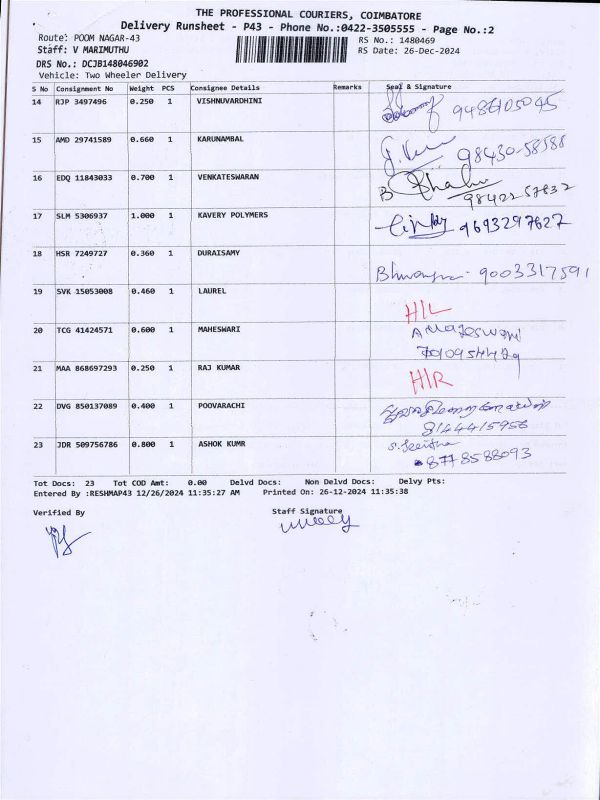 THE PROFESSIONAL COURIERS, COIMBATORE
Delivery Runsheet - P43 - Phone No.:0422-3505555 - Page No.:2
Route: POOM NAGAR-43 RS No.: 1480469
Staff: V MARIMUTHU RS Date: 26-Dec-2024
DRS No.: DCJB148046902
Vehicle: Two Wheeler Delivery
S No Consignment No Weight PCS Consignee Details Remarks Seal & Signature
14 RJP 3497496 0.250 1 VISHNUVARDHINI
15 AMD 29741589 0.660 1 KARUNAMBAL
98430-58588
16 EDQ 11843033 0.700 1 VENKATESWARAN
B
17 SLM 5306937 1.000 1 KAVERY POLYMERS
9693297627
18 HSR 7249727 0.360 1 DURAISAMY
9003317591
19 SVK 15053008 0.460 1 LAUREL
H/L
20 TCG 41424571 0.600 1 MAHESWARI
21 MAA 868697293 0.250 1 RAJ KUMAR
H/R
22 DVG 850137089 0.400 1 POOVARACHI
8144415956
23 JDR 509756786 0.800 1 ASHOK KUMR
8778588093
Tot Docs: 23 Tot COD Amt: 0.00 Delvd Docs: Non Delvd Docs: Delvy Pts:
Entered By :RESHMAP43 12/26/2024 11:35:27 AM Printed On: 26-12-2024 11:35:38
Verified By Staff Signature